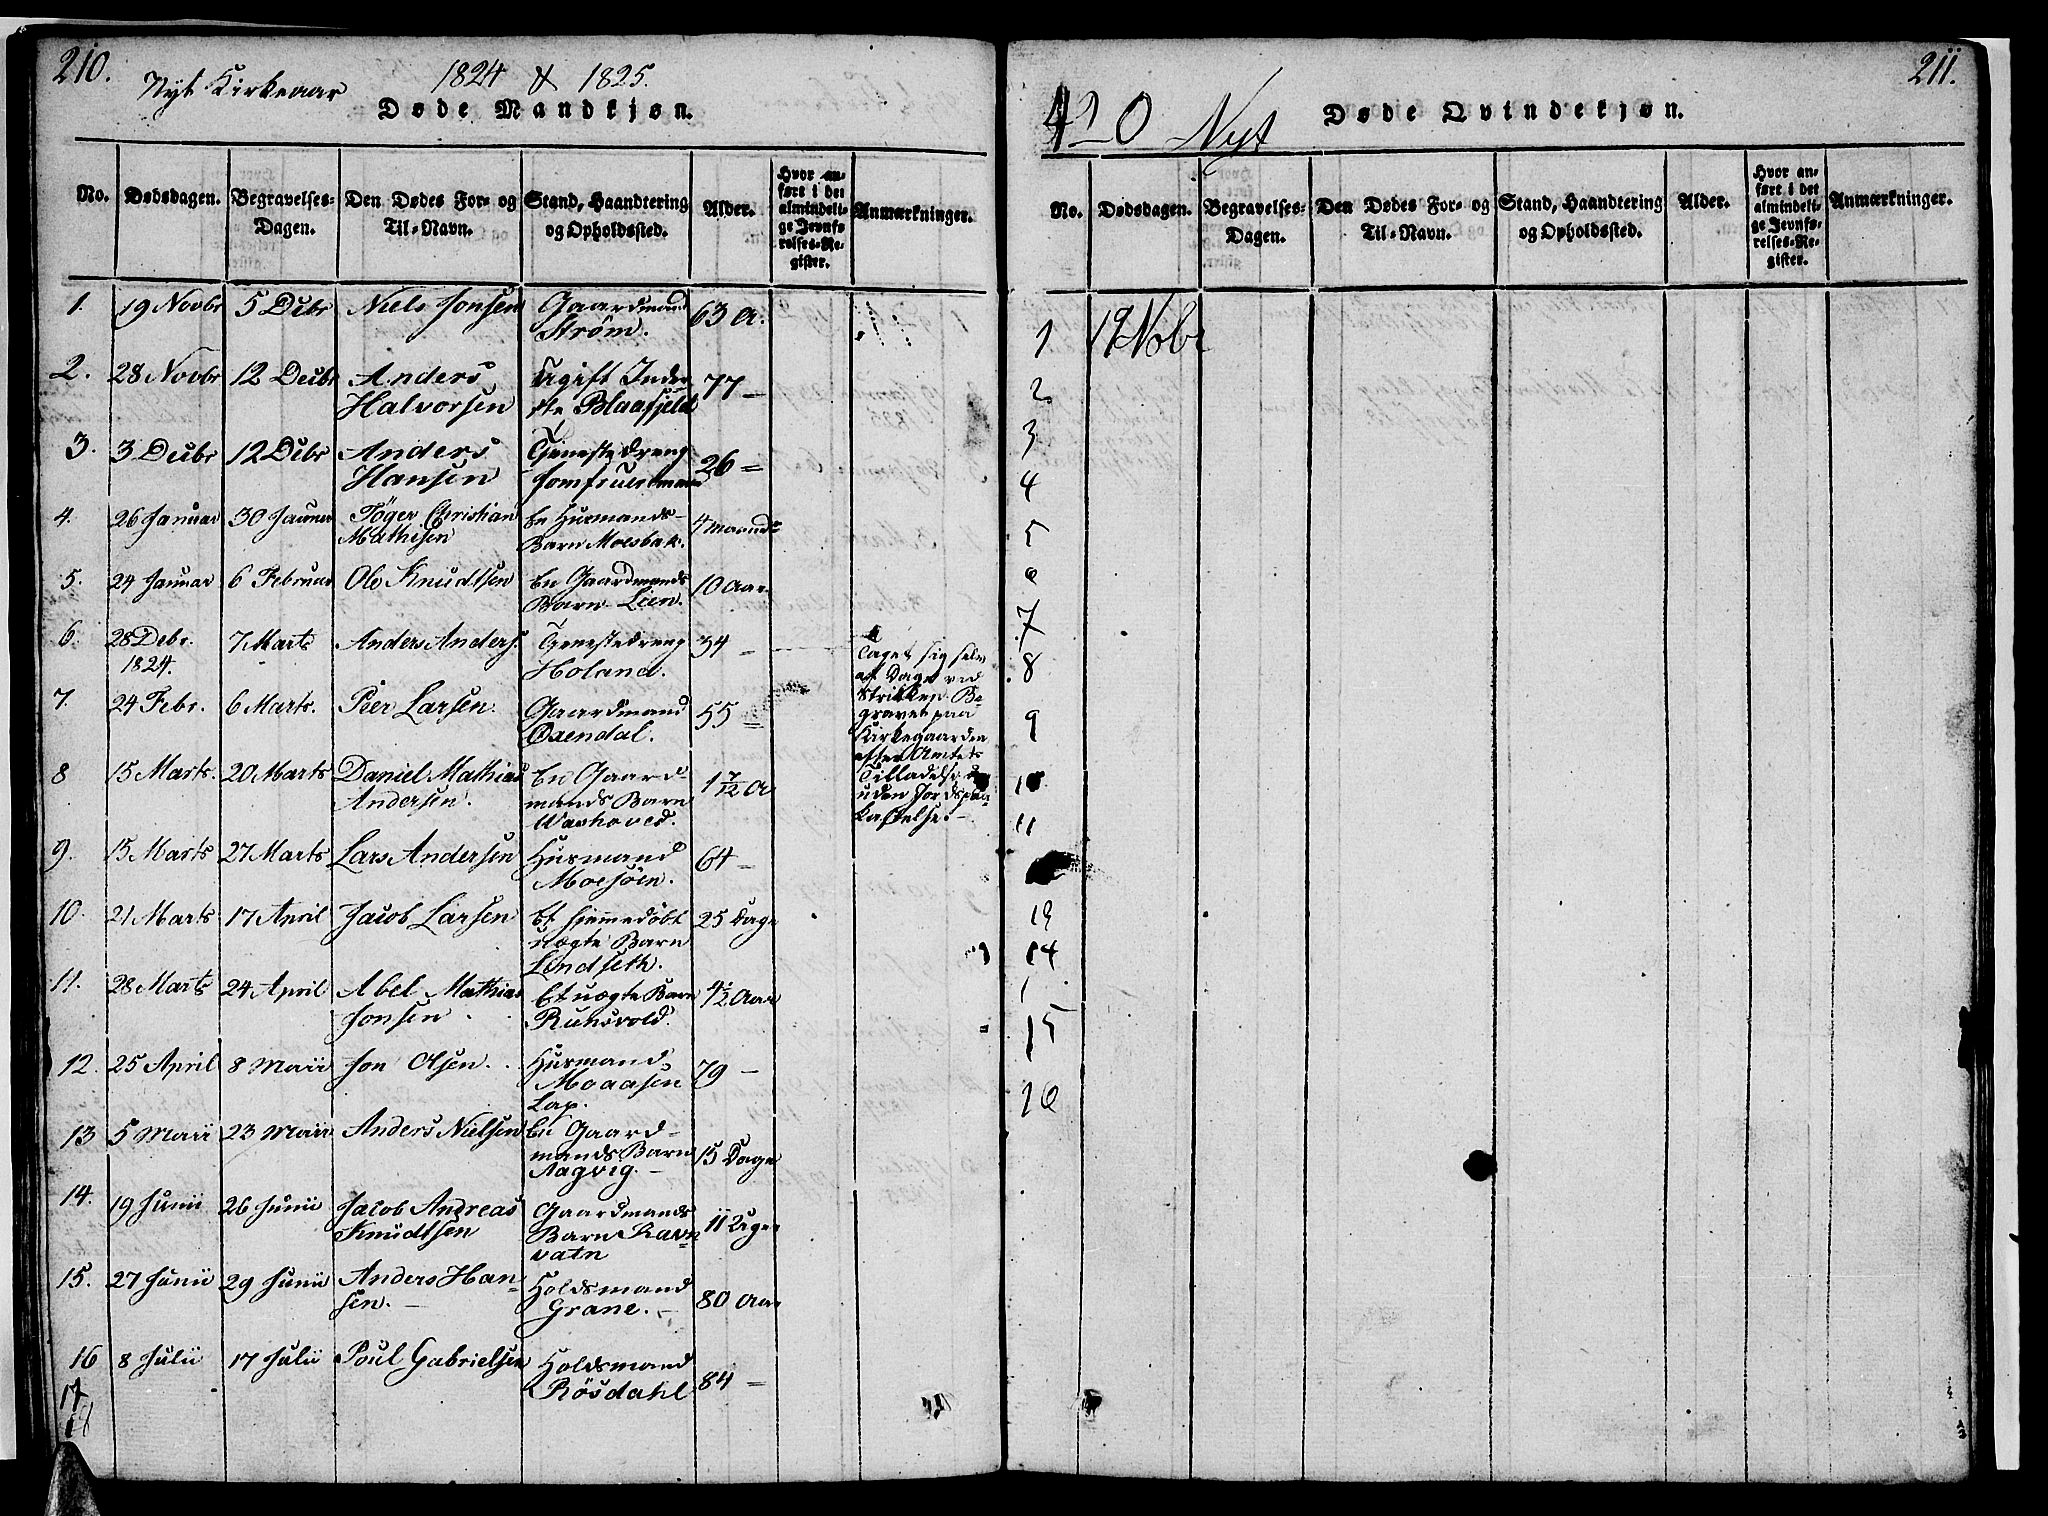 210.
Nyt Kirkeaar 1824 & 1825.
Døde Mandkjøn.
No. Dødsdagen. Begravelses-Dagen. Den Dødes For- og Til-Navn. Stand, Haandtering og Opholdssted. Alder. Hvor anført i det almindelige Jevnførelses-Register. Anmærkninger.
1. 19 Novbr 5 Decbr Niels Jonsen Gaardmand
Strøm. 63 A.
2. 28 Novbr 12 Decbr Anders
Halvorsen Ugift Inder
ste Blaafjeld 77 -
3. 3 Decbr 12 Decbr Anders
Hansen Tjenestedreng
26 =
4. 26 Januar 30 Januar Töger Christian
Mathisen En Huusmands-
Barn Moesbak. 4 maaneder
5. 24 Januar 6 Februar Ole Knudtsen En Gaardmands
Barn Lien. 10 Aar
6. 28 Debr.
1824. 7 Marts Anders Anders. Tjenestedreng
Holand. 34 -
Taget sig selv
af Dage ved
Strikken. Be-
gravet paa
Kirkegaarden
efter Amtets
Tilladelse
uden Jordspaa-
kastelse. -
7. 24 Febr. 6 Marts. Peer Larsen. Gaardmand
Oxendal. 55 =
8 15 Marts. 20 Marts Daniel Mathias
Andersen. En Gaard-
mands Barn
1 7/12 A
9. 15 Marts 27 Marts Lars Andersen Huusmand
Moesjöen. 64 -
10. 21 Marts 17 April Jacob Larsen Et hjemmedøbt
uægte Barn
Lindseth. 25 Dage
11. 28 Marts 24 April Abel Mathias
Jonsen Et uægte Barn
Runsvold. 4 1/2 Aar
12. 25 April 8 Maii Jon Olsen. Huusmand
Moaasen
Lap. 79 -
13 5 Maii 23 Maii Anders Nielsen En Gaard-
mands Barn
Aagvig. - 15 Dage
14. 19 Junii 26 Junii Jacob Andreas
Knudtsen Gaardmands
Barn Ravn
vatn 11 Uger
15. 27 Junii 29 Junii Anders Han-
sen. - Holdsmand
Grane. - 80 Aar
16 8 Julii 17 Julii Poul Gabrielsen Holdsmand
Rösdahl 84 -
17
18
211.
Nyt
Døde Qvindekjøn.
No. Dødsdagen. Begravelses-Dagen. Den Dødes For- og Til-Navn. Stand, Haandtering og Opholdssted. Alder. Hvor anført i det almindelige Jevnførelses-Register. Anmærkninger.
1 19 Nobr
2
3
4
5
6
7
8
9
10
11
13
14
1
15
16